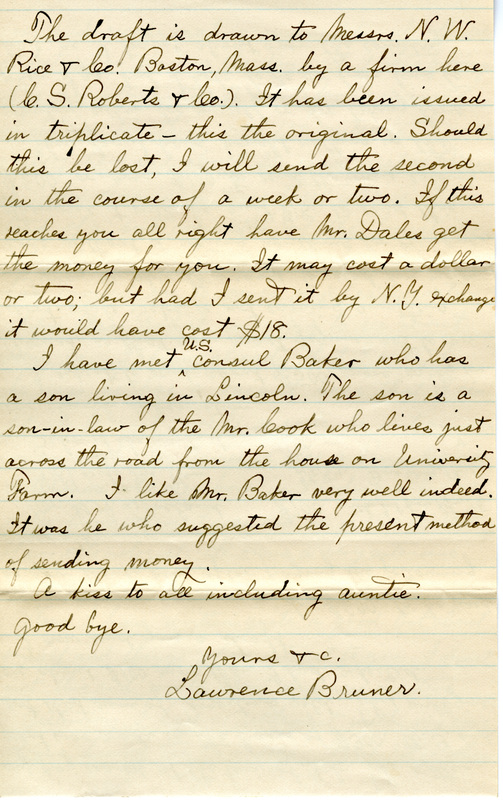 The draft is drawn to Messrs. N. W.
Rice & Co. Boston, Mass. by a firm here
(C. S. Roberts & Co.). It has been issued
in triplicate – this the original. Should
this be lost, I will send the second
in the course of a week or two. If this
reaches you all right have Mr. Dales get
the money for you. It may cost a dollar
or two; but had I sent it by N.Y. exchange
it would have cost $18.
I have met U.S. consul Baker who has
a son living in ^ Lincoln. The son is a
son-in-law of the Mr. Cook who lives just
across the road from the house on Univerity
Farm. I like Mr. Baker very well indeed.
It was he who suggested the present method
of sending money.
A kiss to all including auntie.
Good bye.
Yours &c.
Lawrence Bruner.